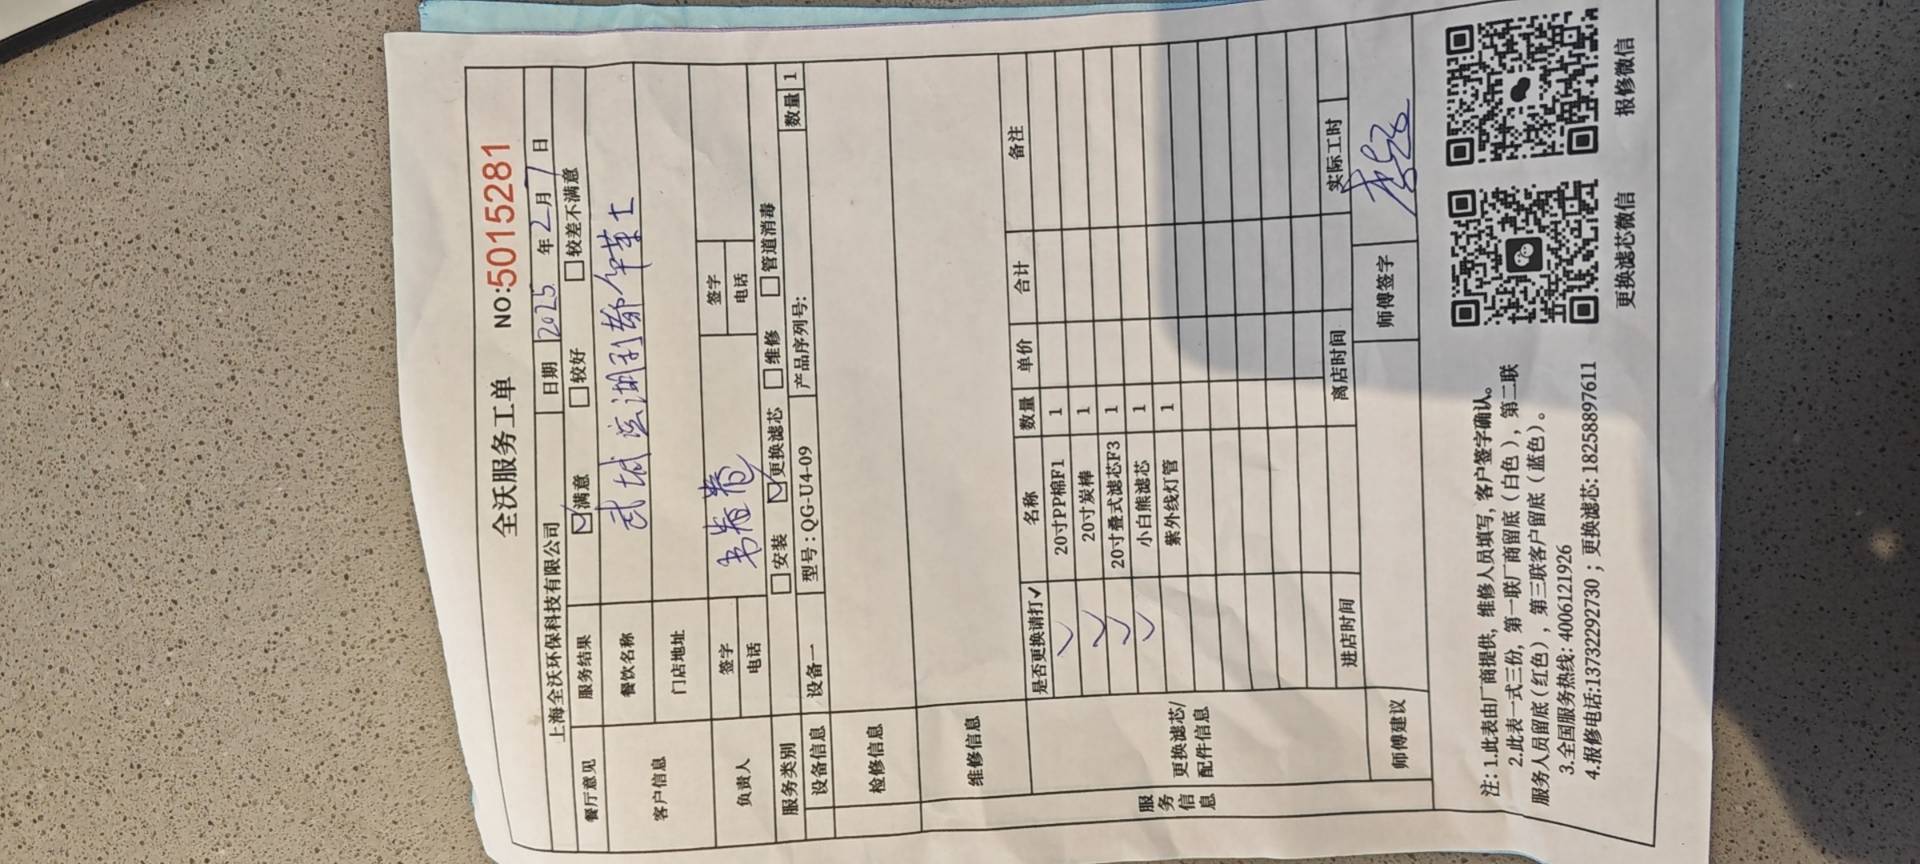 全沃服务工单 NO:5015281
上海全沃环保科技有限公司 日期 2025年2月7日
餐厅意见 服务结果 ☑满意 □较好 □较差不满意
客户信息 餐饮名称
门店地址
负责人 签字 签字
电话 电话
服务类别 □安装 ☑更换滤芯 □维修 □管道消毒
设备信息 设备一 型号:QG-U4-09 产品序列号: 数量 1
检修信息
维修信息
服务信息
更换滤芯/配件信息
是否更换请打✓ 名称 数量 单价 合计 备注
✓ 20寸PP棉F1 1
✓ 20寸炭棒 1
✓ 20寸叠式滤芯F3 1
✓ 小白熊滤芯 1
紫外线灯管 1
进店时间 离店时间 实际工时
师傅建议 师傅签字
注: 1.此表由厂商提供, 维修人员填写, 客户签字确认。
2.此表一式三份, 第一联厂商留底(白色), 第二联
服务人员留底(红色), 第三联客户留底(蓝色)。
3.全国服务热线: 4006121926
4.报修电话:13732292730 ; 更换滤芯: 18258897611
更换滤芯微信 报修微信